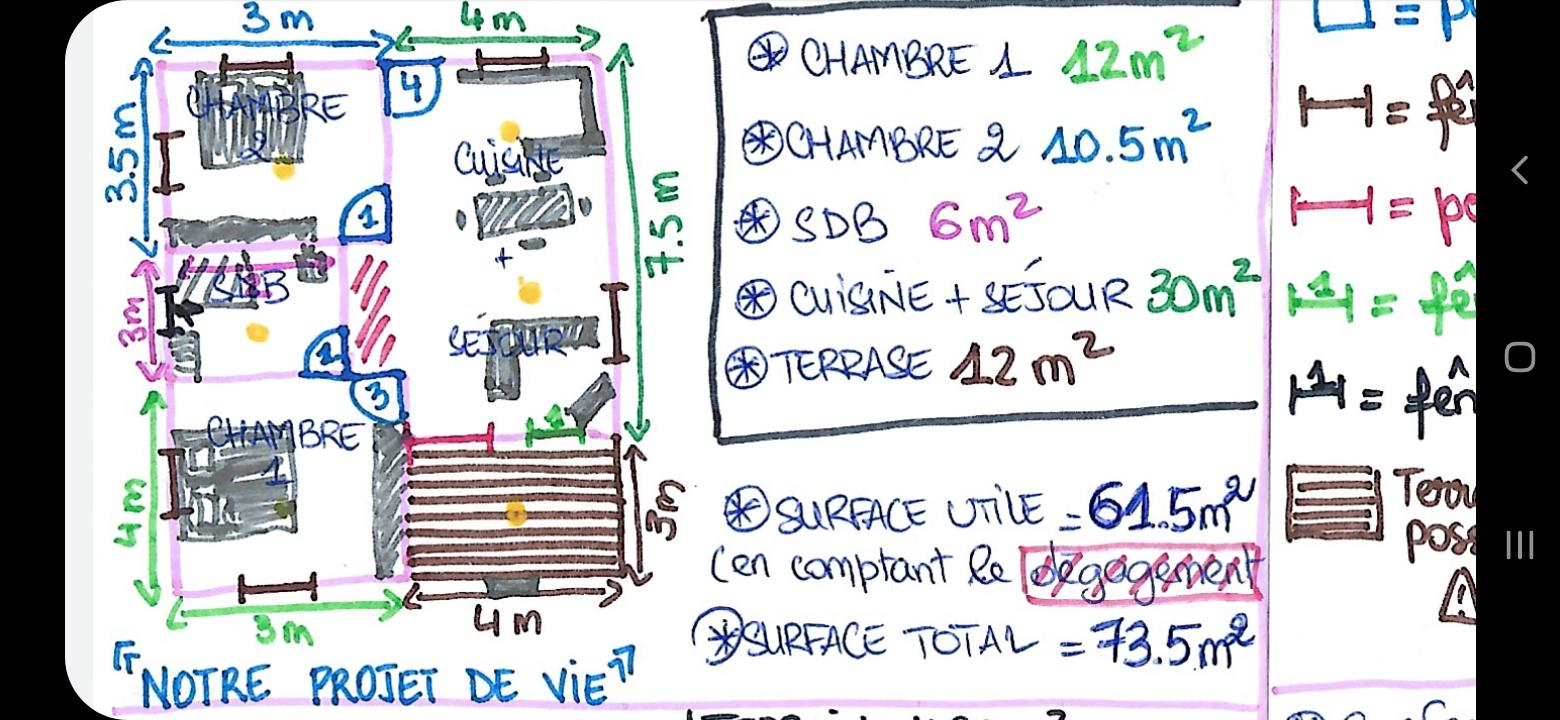 3m
4m
3.5m
CHAMBRE
2
4
CUISINE
+
SÉJOUR
1
7.5m
SDB
3m
2
1
3
CHAMBRE
1
4m
3m
3m
4m
"NOTRE PROJET DE VIE"
CHAMBRE 1 12m²
CHAMBRE 2 10.5m²
SDB 6m²
CUISINE + SÉJOUR 30m²
TERRASE 12m²
SURFACE UTILE = 61.5m²
(en comptant le dégagement
SURFACE TOTAL = 73.5m²
= fê
1 = fê
1 = fên
Terr
poss